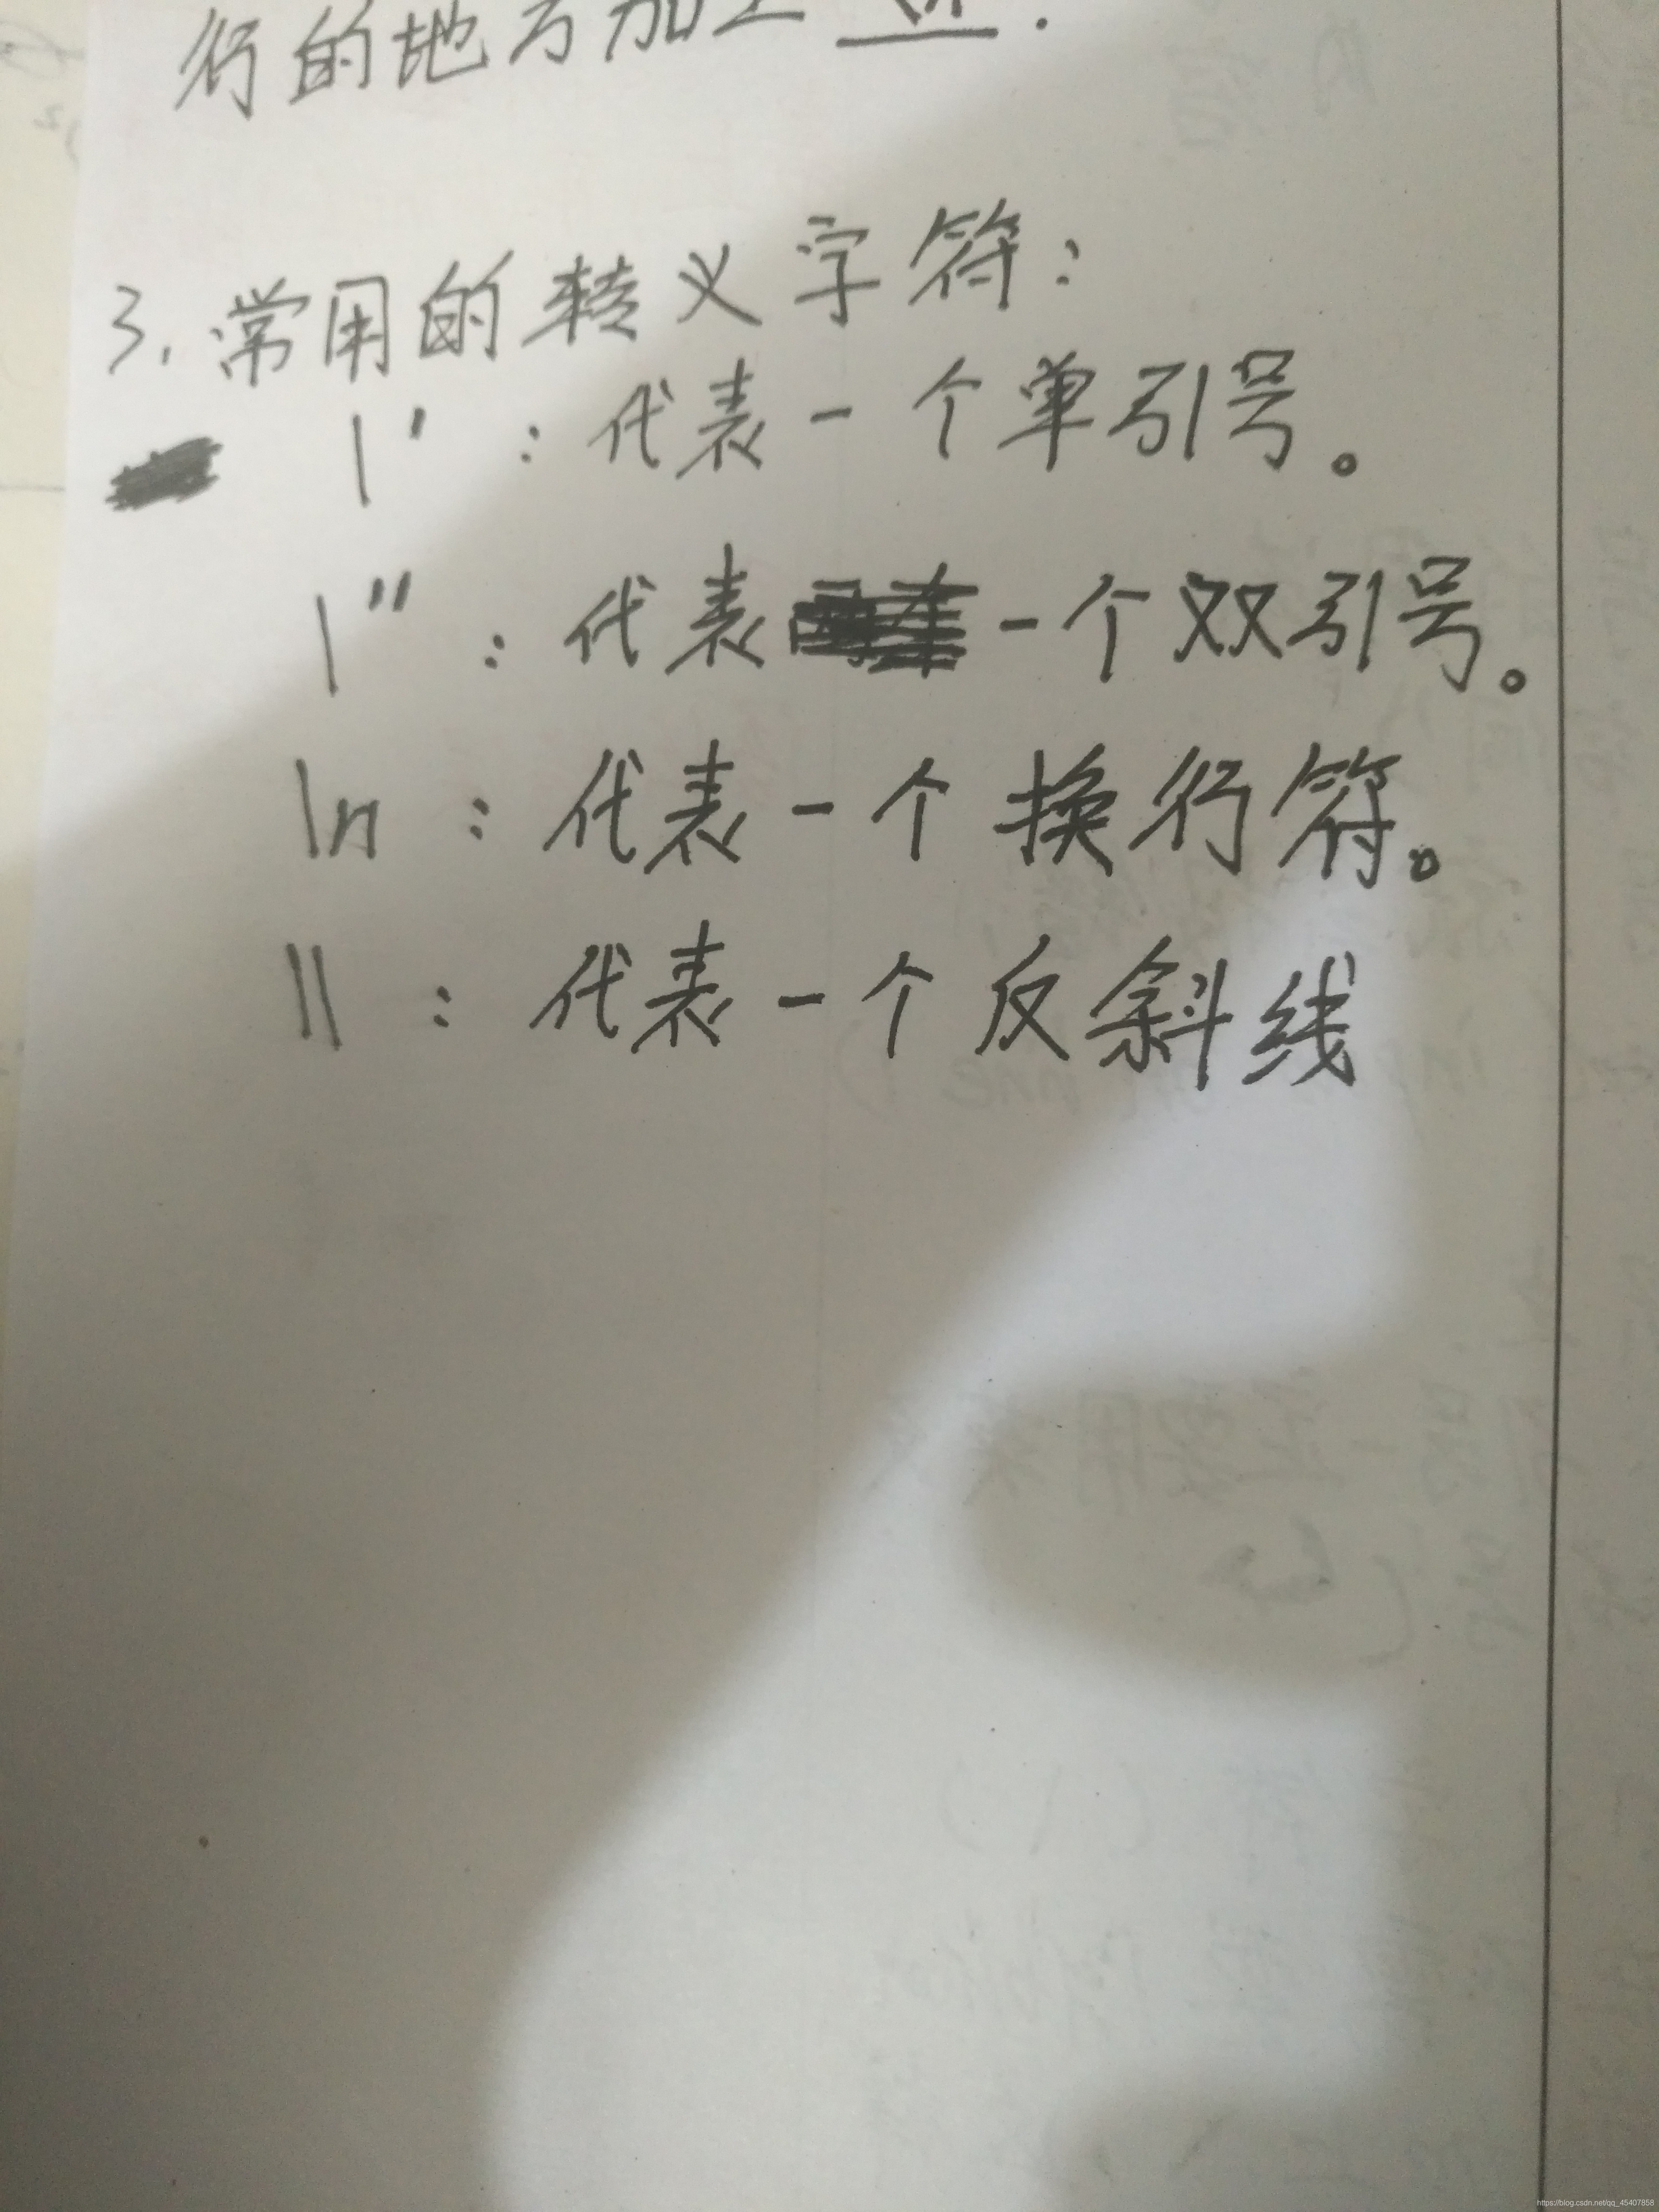 行的地方加上 \n.
3. 常用的转义字符:
\' : 代表一个单引号。
\" : 代表一个双引号。
\n : 代表一个换行符。
\\ : 代表一个反斜线
https://blog.csdn.net/qq_45407858